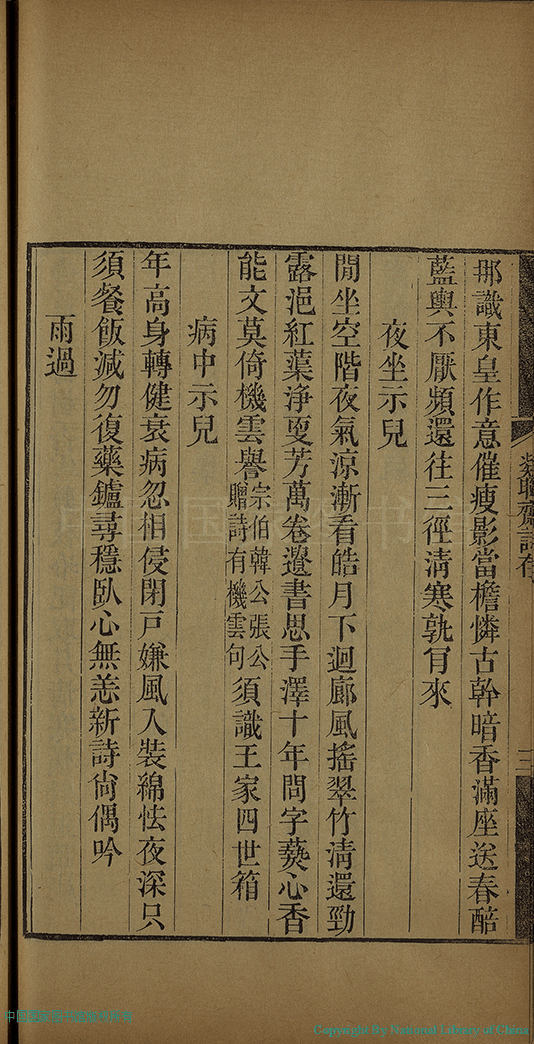 那識東皇作意催瘦影當檐憐古幹暗香滿座送春醅
藍輿不厭頻還往三徑清寒孰肎來
夜坐示兒
閒坐空階夜氣涼漸看皓月下迴廊風搖翠竹清還勁
露浥紅葉淨更芳萬卷遺書思手澤十年問字爇心香
能文莫倚機雲譽宗伯韓公張公贈詩有機雲句須識王家四世箱
病中示兒
年高身轉健衰病忽相侵閉戸嫌風入裝綿怯夜深只
須餐飯減勿復藥鑪尋穩臥心無恙新詩尙偶吟
雨過
齋詩存
三
Copyright By National Library of China